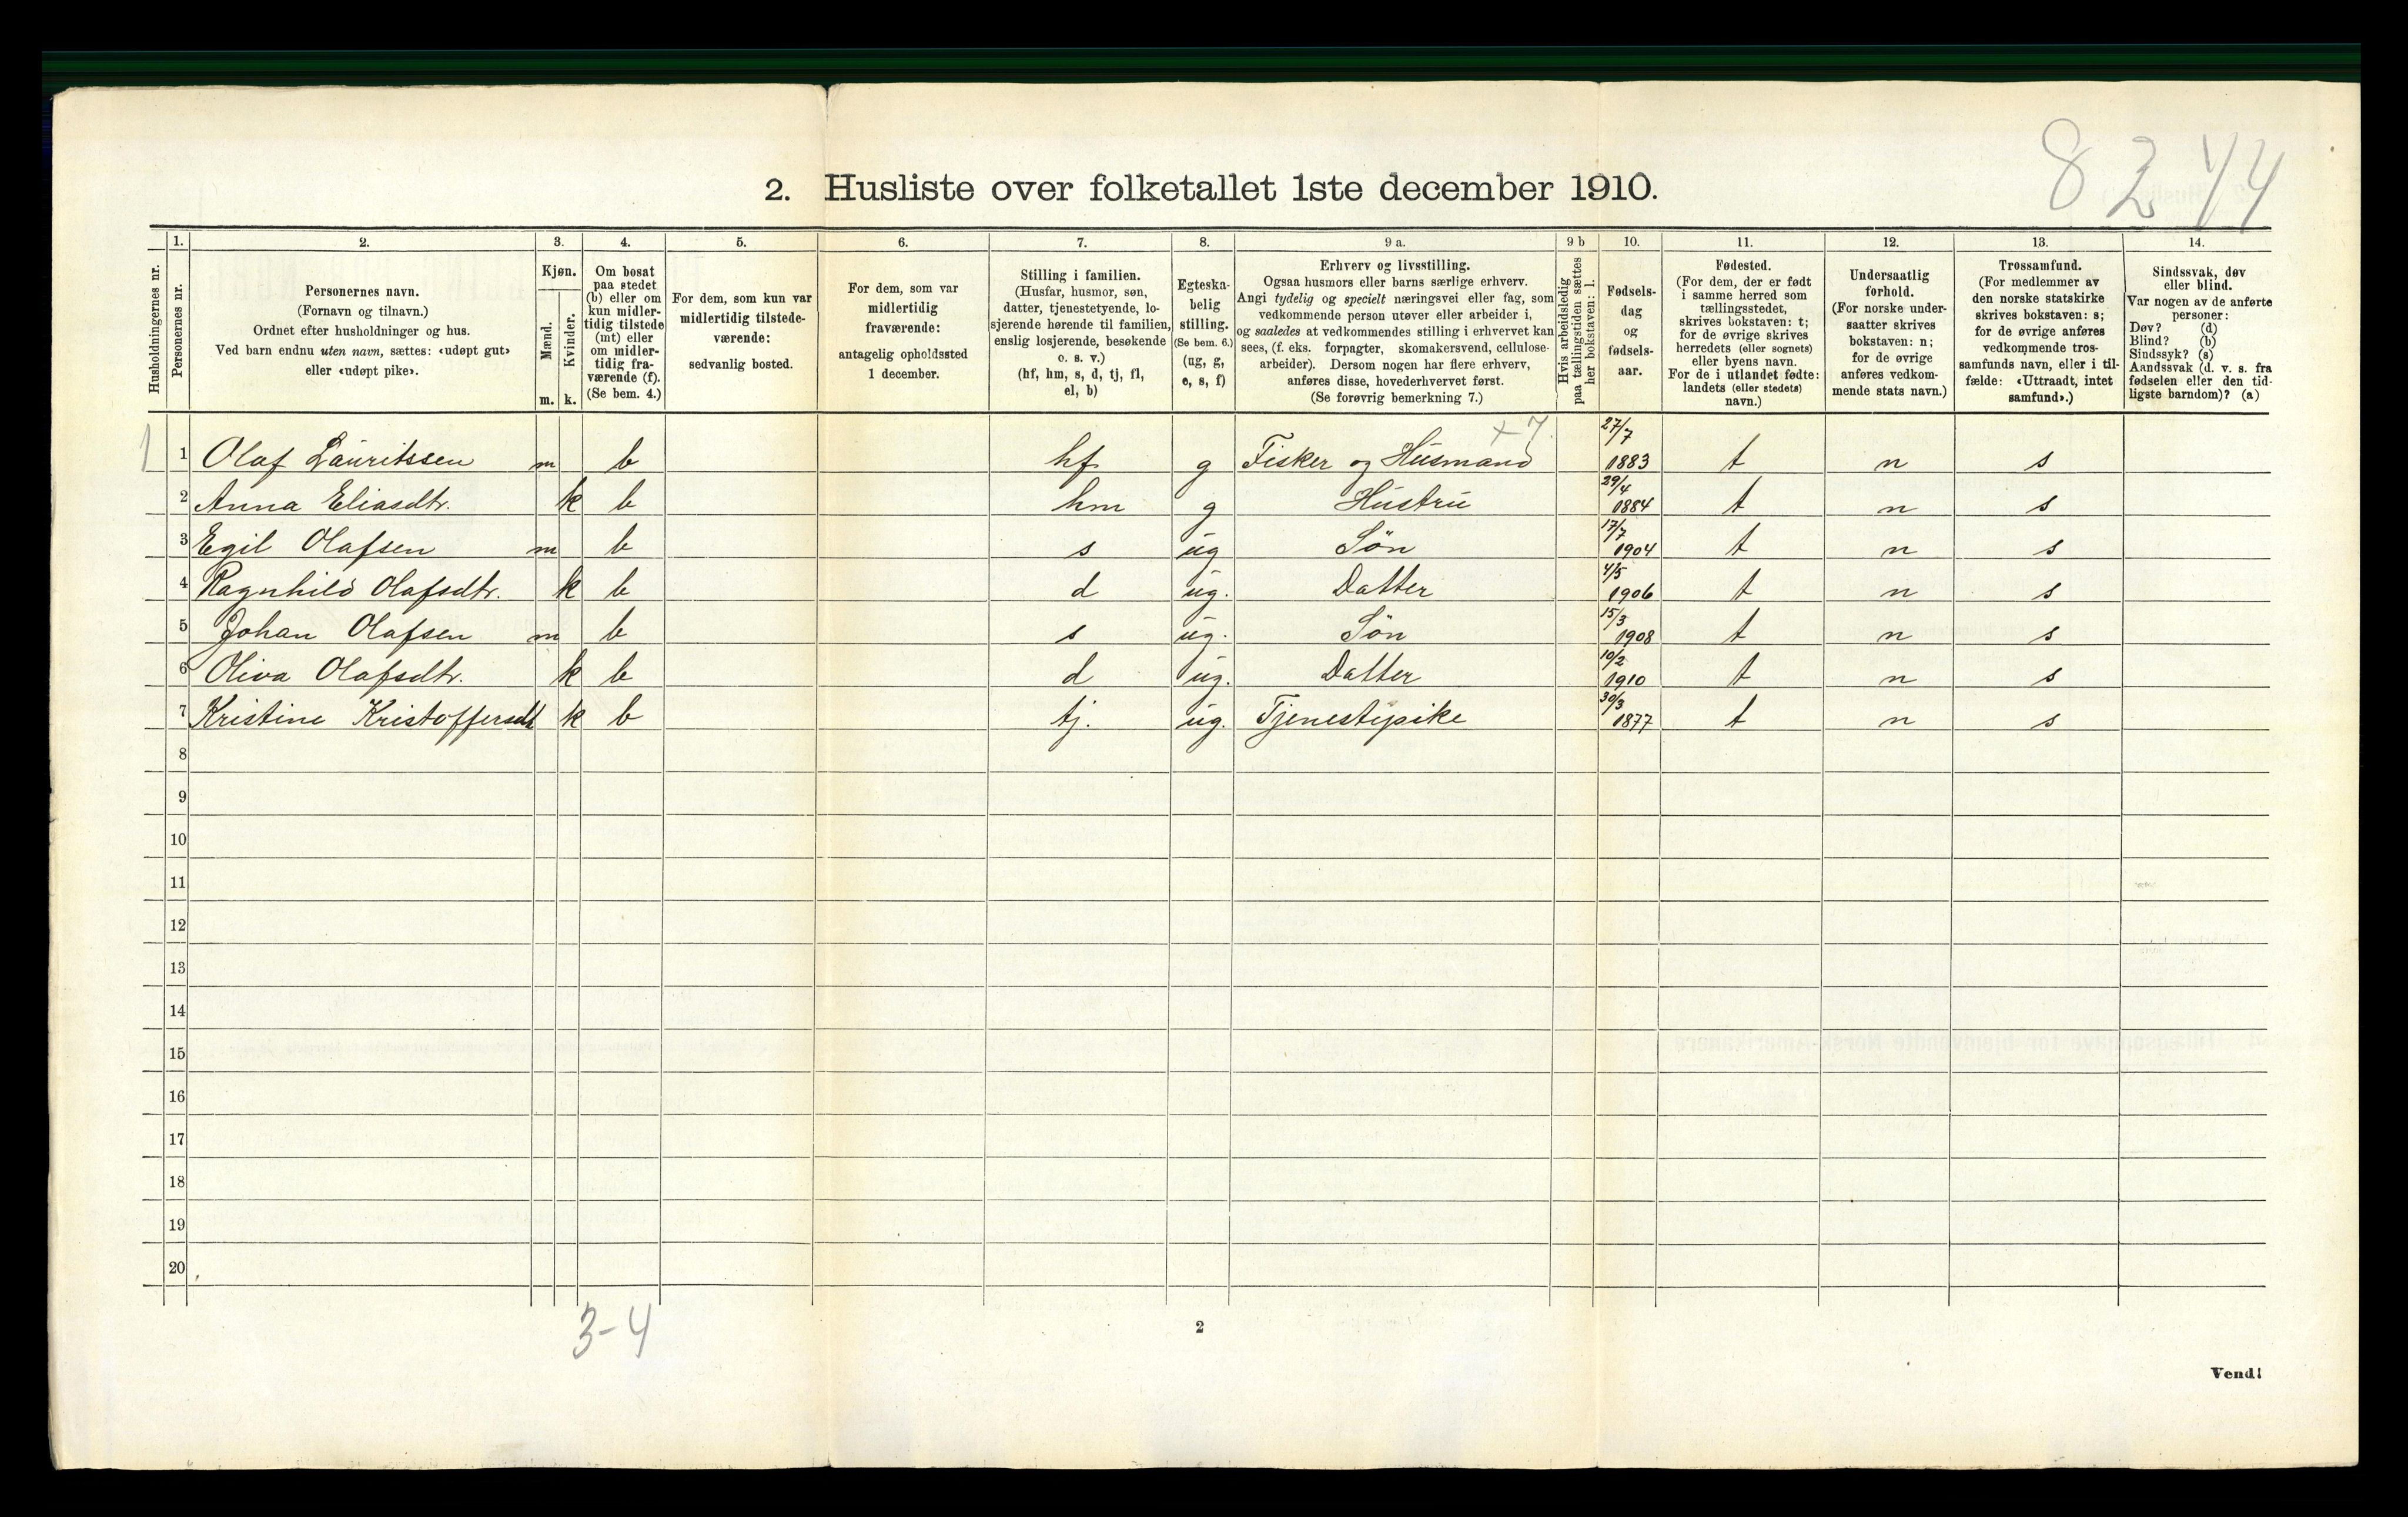 8244
2. Husliste over folketallet 1ste december 1910.
1. 2. 3. 4. 5. 6. 7. 8. 9 a. 9 b 10. 11. 12. 13. 14.
Husholdningernes nr.
Personernes nr.
Personernes navn.
(Fornavn og tilnavn.)
Ordnet efter husholdninger og hus.
Ved barn endnu uten navn, sættes: «udøpt gut»
eller «udøpt pike».
Kjøn.
Mænd.
Kvinder.
m. k.
Om bosat
paa stedet
(b) eller om
kun midler-
tidig tilstede
(mt) eller
om midler-
tidig fra-
værende (f).
(Se bem. 4.)
For dem, som kun var
midlertidig tilstede-
værende:
sedvanlig bosted.
For dem, som var
midlertidig
fraværende:
antagelig opholdssted
1 december.
Stilling i familien.
(Husfar, husmor, søn,
datter, tjenestetyende, lo-
sjerende hørende til familien,
enslig losjerende, besøkende
o. s. v.)
(hf, hm, s, d, tj, fl,
el, b)
Egteska-
belig
stilling.
(Se bem. 6.)
(ug, g,
e, s, f)
Erhverv og livsstilling.
Ogsaa husmors eller barns særlige erhverv.
Angi tydelig og specielt næringsvei eller fag, som
vedkommende person utøver eller arbeider i,
og saaledes at vedkommendes stilling i erhvervet kan
sees, (f. eks. forpagter, skomakersvend, cellulose-
arbeider). Dersom nogen har flere erhverv,
anføres disse, hovederhvervet først.
(Se forøvrig bemerkning 7.)
Hvis arbeidsledig
paa tællingstiden sættes
her bokstaven: l.
Fødsels-
dag
og
fødsels-
aar.
Fødested.
(For dem, der er født
i samme herred som
tællingsstedet,
skrives bokstaven: t;
for de øvrige skrives
herredets (eller sognets)
eller byens navn.
For de i utlandet fødte:
landets (eller stedets)
navn.)
Undersaatlig
forhold.
(For norske under-
saatter skrives
bokstaven: n;
for de øvrige
anføres vedkom-
mende stats navn.)
Trossamfund.
(For medlemmer av
den norske statskirke
skrives bokstaven: s;
for de øvrige anføres
vedkommende tros-
samfunds navn, eller i til-
fælde: «Uttraadt, intet
samfund».)
Sindssvak, døv
eller blind.
Var nogen av de anførte
personer:
Døv? (d)
Blind? (b)
Sindssyk? (s)
Aandssvak (d. v. s. fra
fødselen eller den tid-
ligste barndom)? (a)
1 1 Olaf Lauritssen m b hf g Fisker og Husmand +7. 27/7 1883 t n s
2 Anna Eliasdtr. k b hm g Hustru 29/4 1884 t n s
3 Egil Olafsen m b s ug Søn 17/7 1904 t n s
4 Ragnhild Olafsdtr. k b d ug. Datter 4/5 1906 t n s
5 Johan Olafsen m b s ug. Søn 15/3 1908 t n s
6 Oliva Olafsdtr. k b d ug. Datter 10/2 1910 t n s
7 Kristine Kristoffersdt k b tj. ug. Tjenestepike 30/3 1877 t n s
8
9
10
11
12
13
14
15
16
17
18
19
20
3-4
2
Vend!